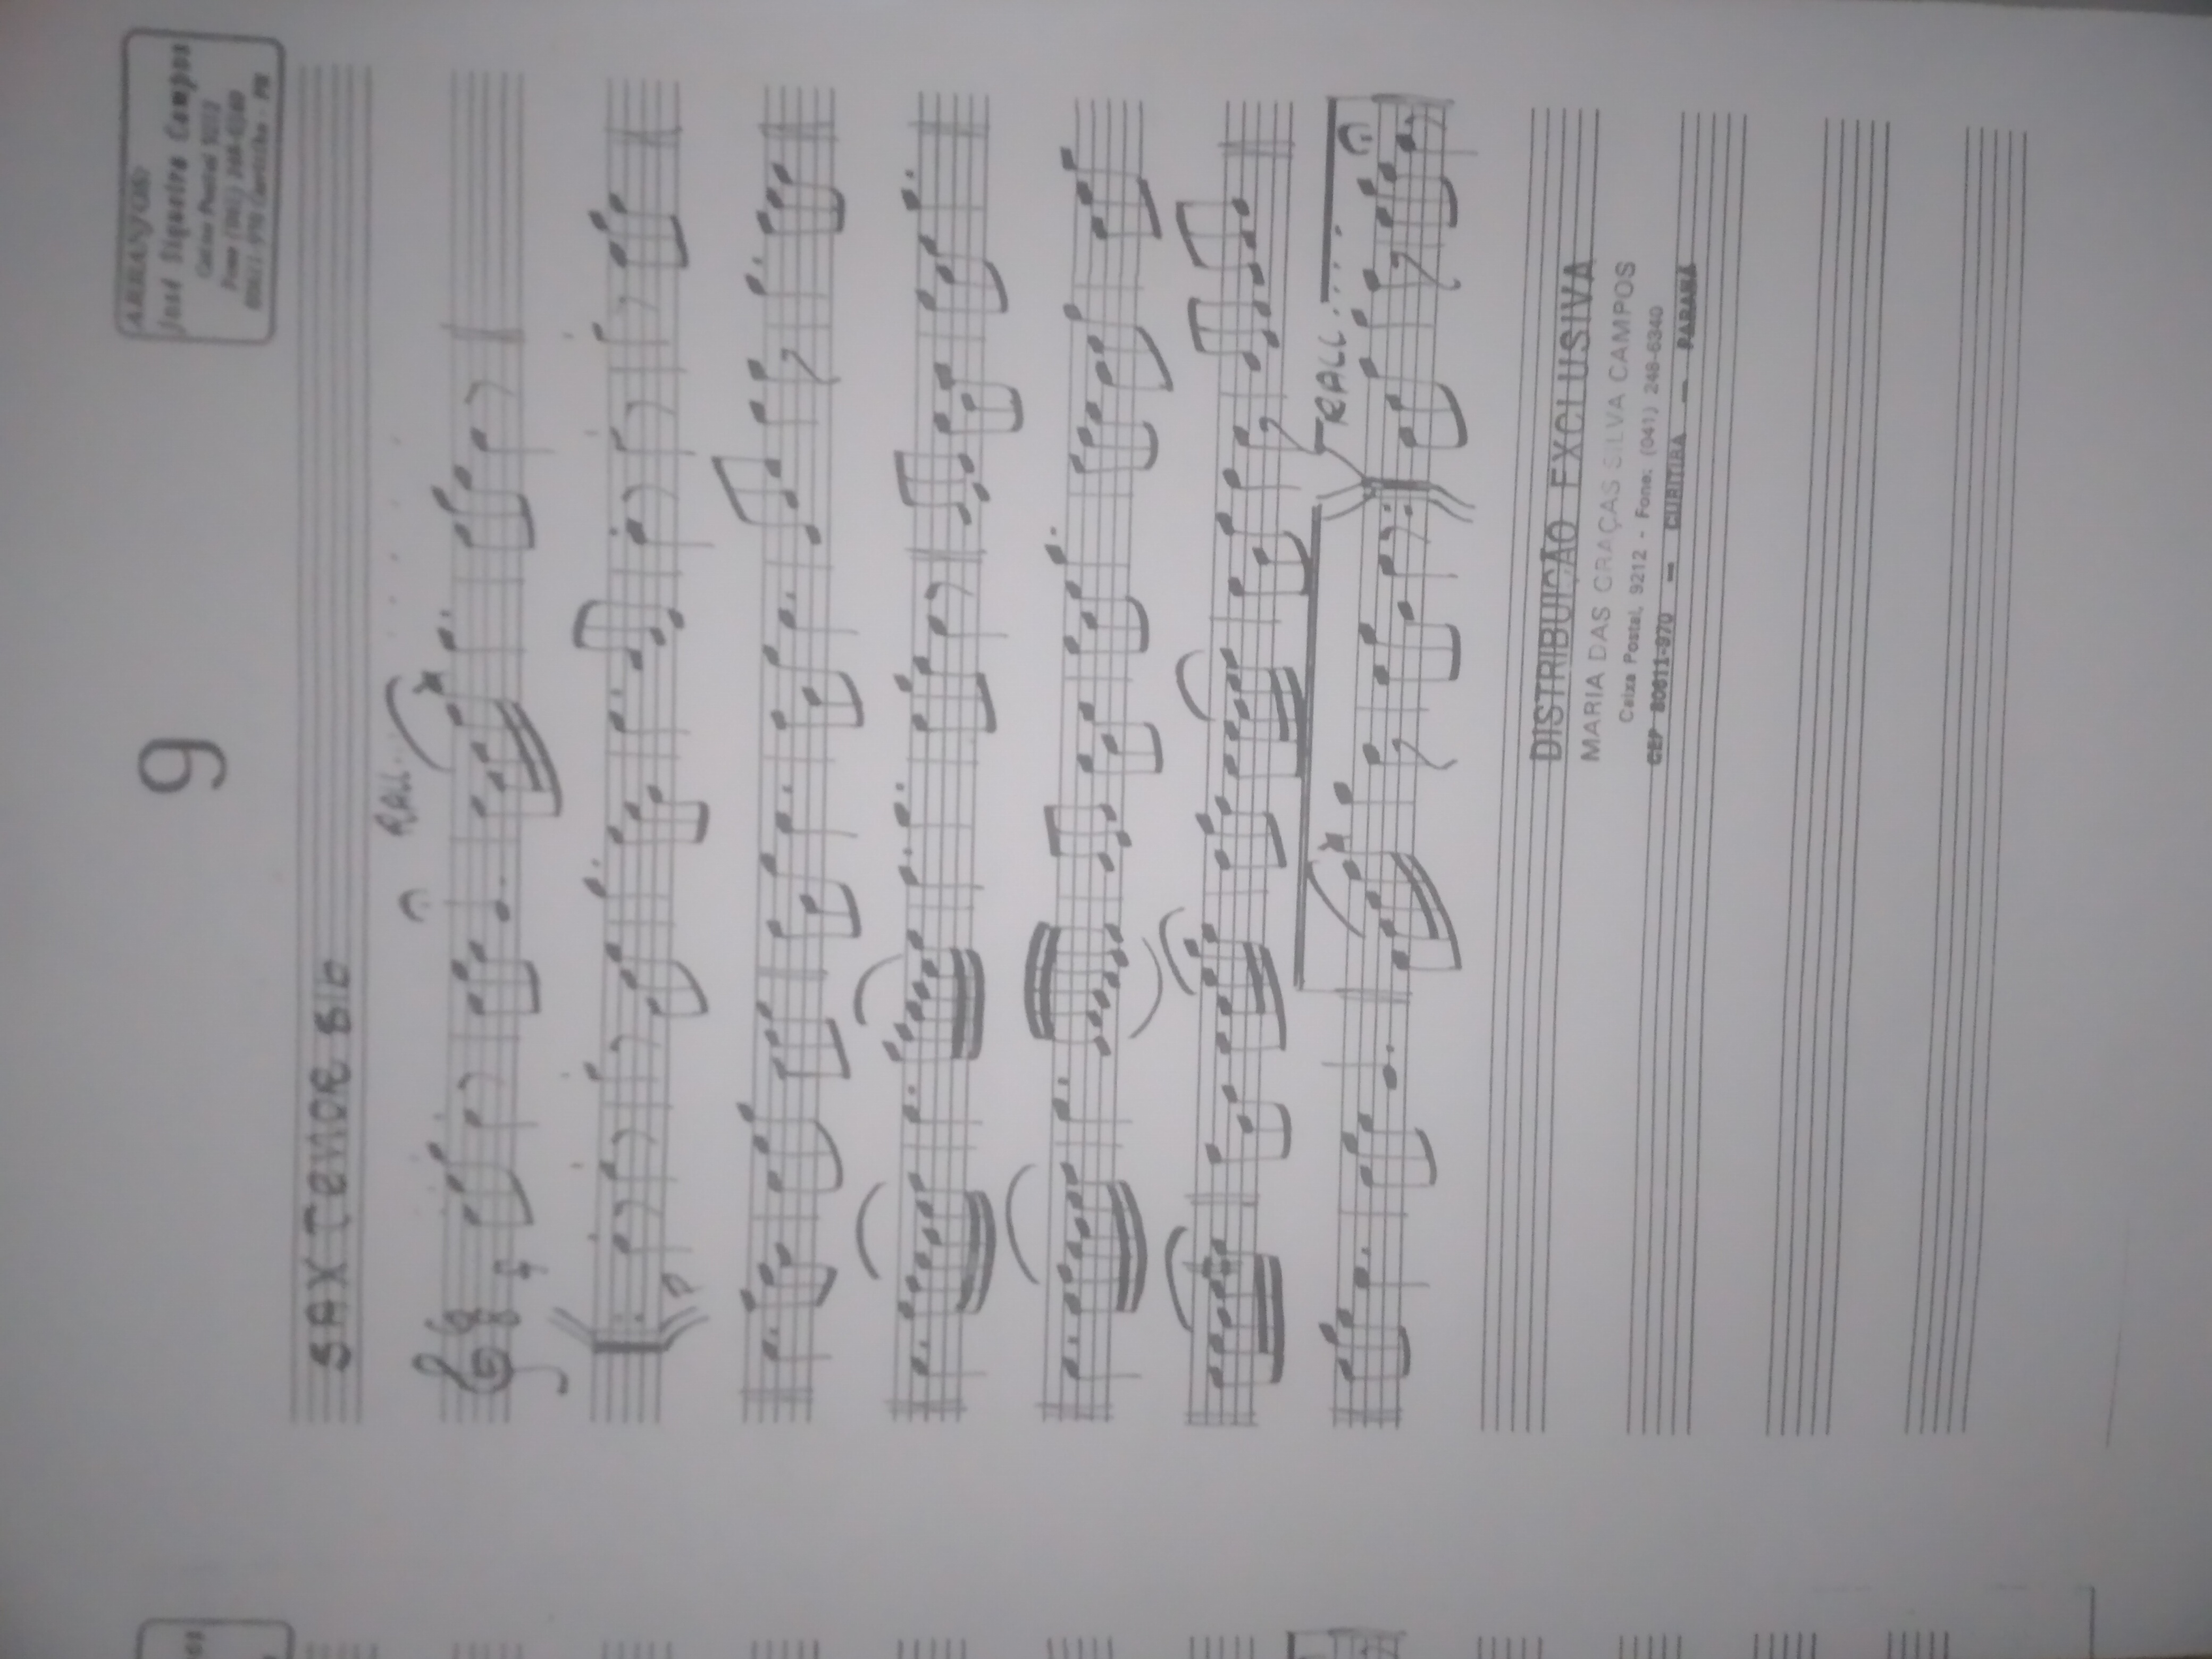 9
ARRANJOS:
José Siqueira Campos
Caixa Postal 9212
Fone (041) 248-6340
80611-970 Curitiba - PR
SAX TENOR SIb
RALL....
f
p
RALL....
DISTRIBUIÇÃO EXCLUSIVA
MARIA DAS GRAÇAS SILVA CAMPOS
Caixa Postal, 9212 - Fone: (041) 248-6340
CEP 80611-970 — CURITIBA — PARANÁ